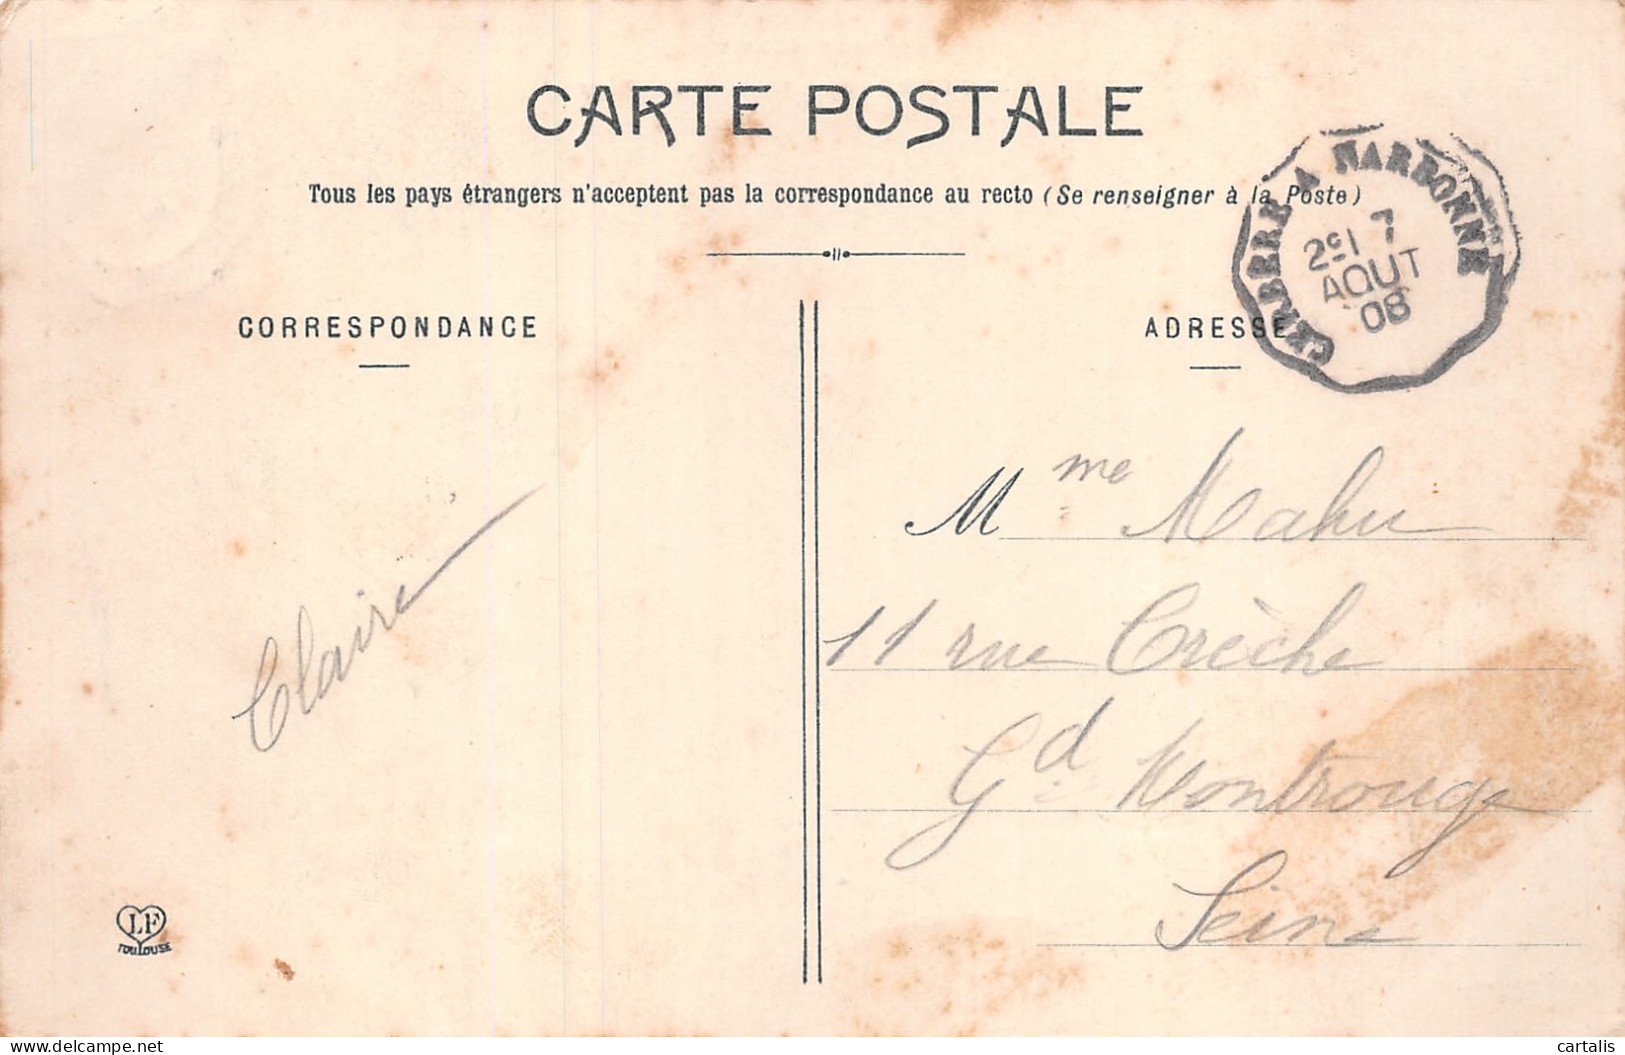 CARTE POSTALE
Tous les pays étrangers n'acceptent pas la correspondance au recto (Se renseigner à la Poste)
CERBERE A NARBONNE
2E1 7
AOUT
08
CORRESPONDANCE
ADRESSE
Claire
Mme Mahu
11 rue Crèche
Gd Montrouge
Seine
LF
TOULOUSE
delcampe.net
cartalis